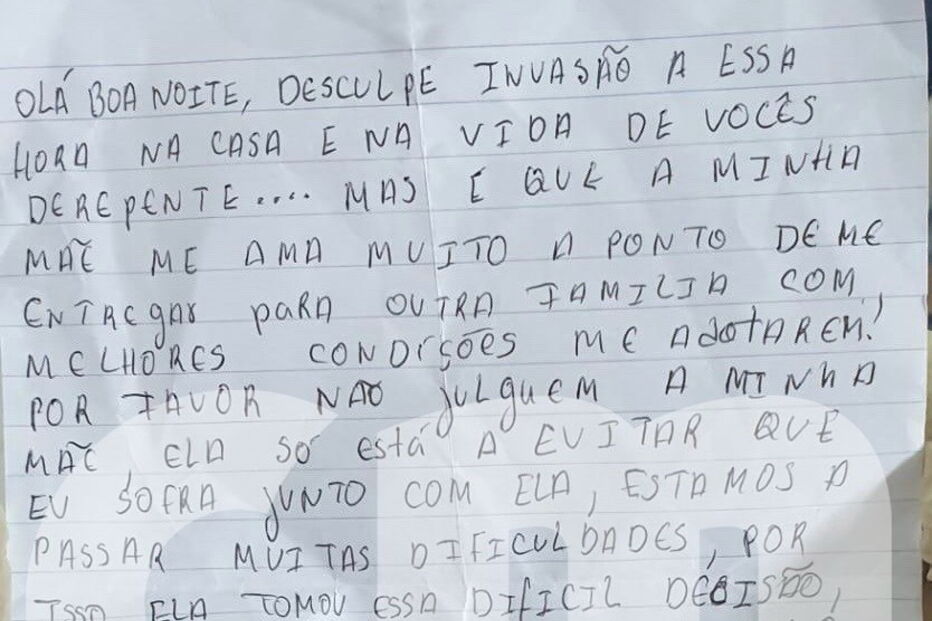 OLÁ BOA NOITE, DESCULPE INVASÃO A ESSA
HORA NA CASA E NA VIDA DE VOCÊS
DEREPENTE.... MAS E QUE A MINHA
MÃE ME AMA MUITO A PONTO DE ME
ENTREGAR PARA OUTRA FAMILIA COM
MELHORES CONDIÇÕES ME ADOTAREM!
POR FAVOR NÃO JULGUEM A MINHA
MÃE, ELA SÓ ESTÁ A EVITAR QUE
EU SOFRA JUNTO COM ELA, ESTAMOS A
PASSAR MUITAS DIFICULDADES, POR
ISSO ELA TOMOU ESSA DIFICIL DECISÃO,